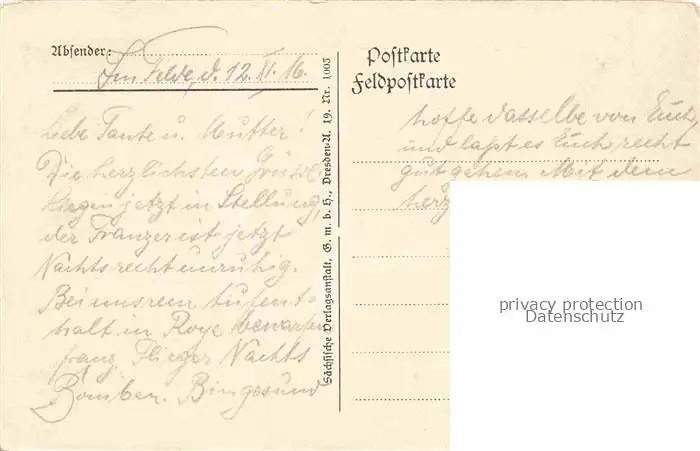 Absender:
Im Felde, d. 12. XI. 16.
Liebe Tante u. Mutter!
Die herzlichsten Grüße.
liegen jetzt in Stellung,
der Franzer ist jetzt
Nachts recht unruhig.
Bei unsrem Aufent-
halt in Roye bewarfen
franz. Flieger Nachts
Bomben. Bin gesund
Sächsische Verlagsanstalt, G. m. b. H., Dresden-A. 19. Nr. 1003
Postkarte
Feldpostkarte
hoffe dasselbe von Euch,
und laßt es Euch recht
gut gehen. Mit dem
privacy protection
Datenschutz